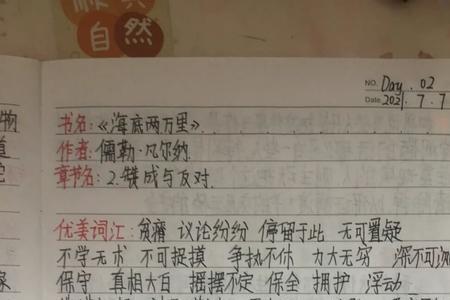 自然
NO. Day . 02
Date 2021.7.7
书名:《海底两万里》.
作者:儒勒·凡尔纳.
章节名:2.赞成与反对.
优美词汇:贫瘠 议论纷纷 停留于此 无可置疑
不学无术 不可捉摸 争执不休 力大无穷 深不可
保守 真相大白 摇摆不定 保全 拥护 浮动
物
道